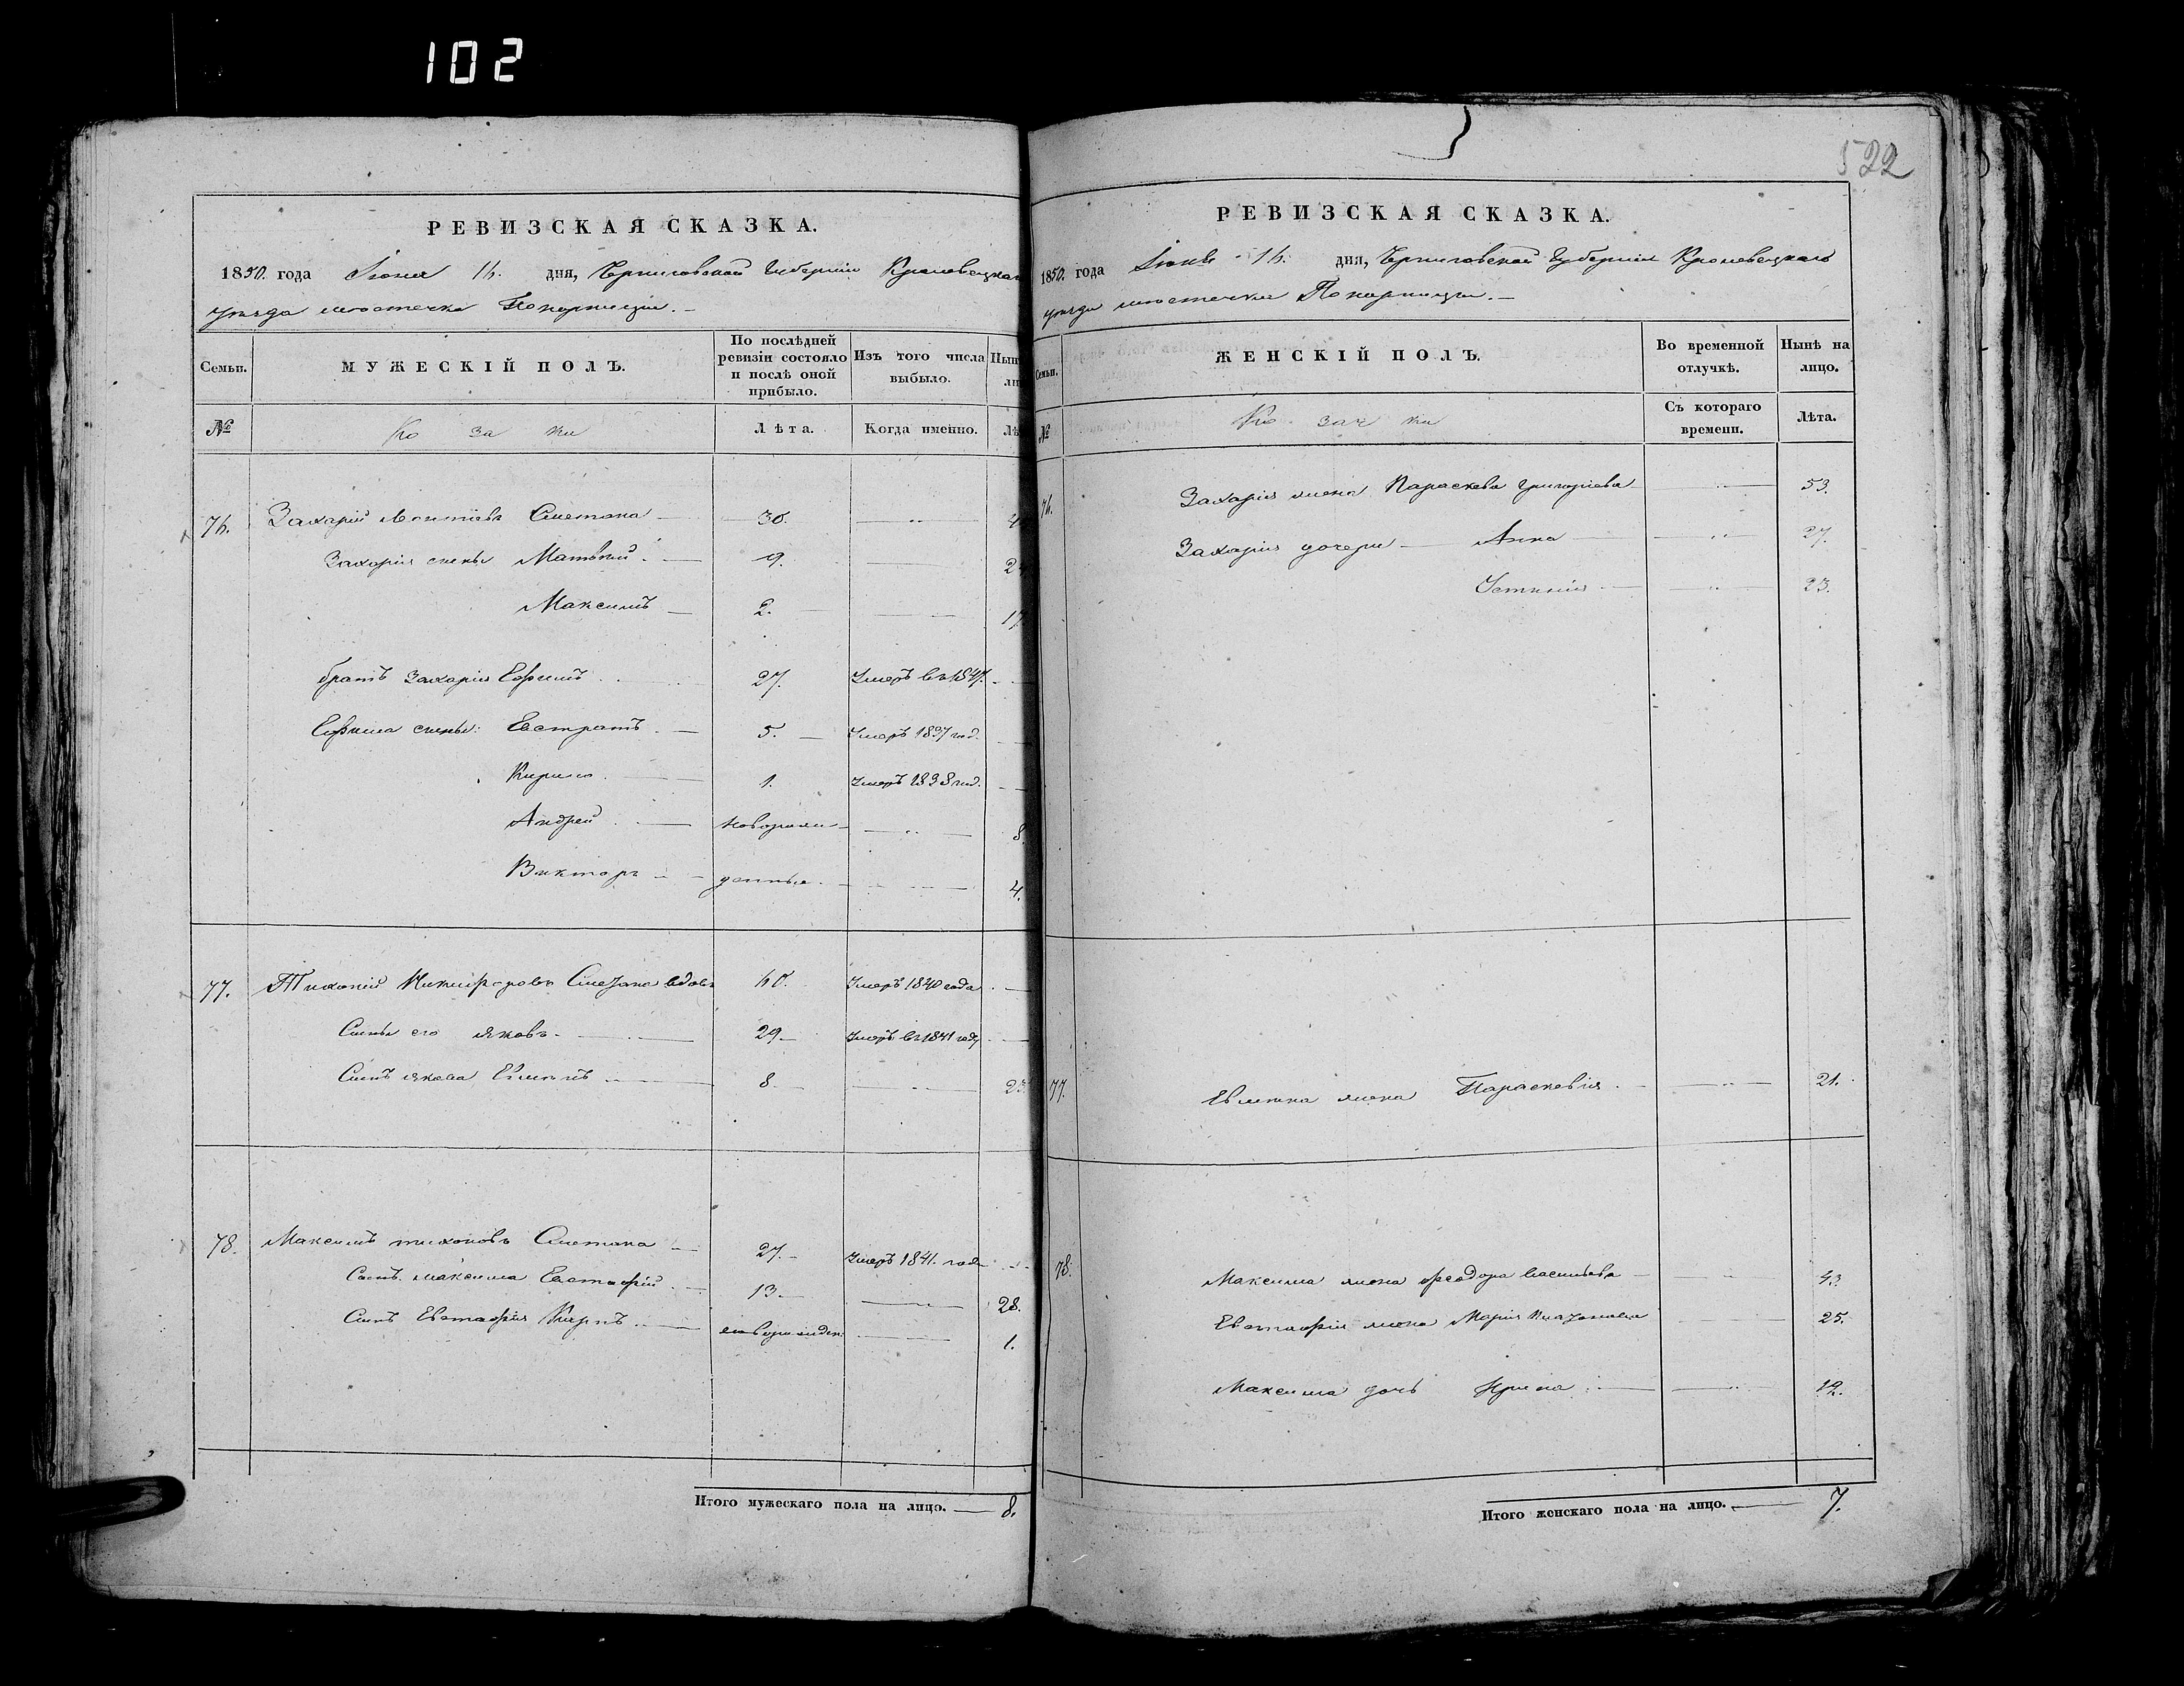 102
522
РЕВИЗСКАЯ СКАЗКА.
1850. года Іюня 16. дня, Черниговской Губерніи Кролевецкаго
уезда местечка Понорницы.
Семьи. МУЖЕСКІЙ ПОЛЪ. По послѣдней ревизіи состояло и послѣ оной прибыло. Изъ того числа выбыло.
№ Козаки Лѣта. Когда именно.
76. Захарій Леонтіевъ Сметана 36.
Захарія сыны Матвѣй 9.
Максимъ 2. 17.
братъ Захарія Ефимъ 27. Умеръ въ 1847.
Ефима сыны: Евстратъ 5. Умеръ 1837 год.
Кирило 1. Умеръ 1838 год.
Андрей новорож- 8.
Викторъ денные. 4.
77. Тихоній Никифоровъ Сметана вдовъ 60. Умеръ 1840 года
Сынъ его Яковъ 29 Умеръ въ 1841 году
Сынъ Якова 8.
78. Максимъ Тихоновъ Сметана 27. Умеръ 1841. года
Сынъ Максима Евстафій 13. 28.
Сынъ Евстафія Карпъ новорожден. 1.
Итого мужескаго пола на лицо. 8.
РЕВИЗСКАЯ СКАЗКА.
1850. года Іюня 16. дня, Черниговской Губерніи Кролевецкаго
уезда местечка Понорницы.
Семьи. ЖЕНСКІЙ ПОЛЪ. Во временной отлучкѣ. Нынѣ на лицо.
№ Козачки Съ котораго времени. Лѣта.
76. Захарія жена Параскева Григоріева 53.
Захарія дочери Анна 27.
Устинія 23.
77. жена Параскевія 21.
78. Максима жена Феодора Васильева 43.
Евстафія жена Марія 25.
Максима дочь Ирина 12.
Итого женскаго пола на лицо. 7.